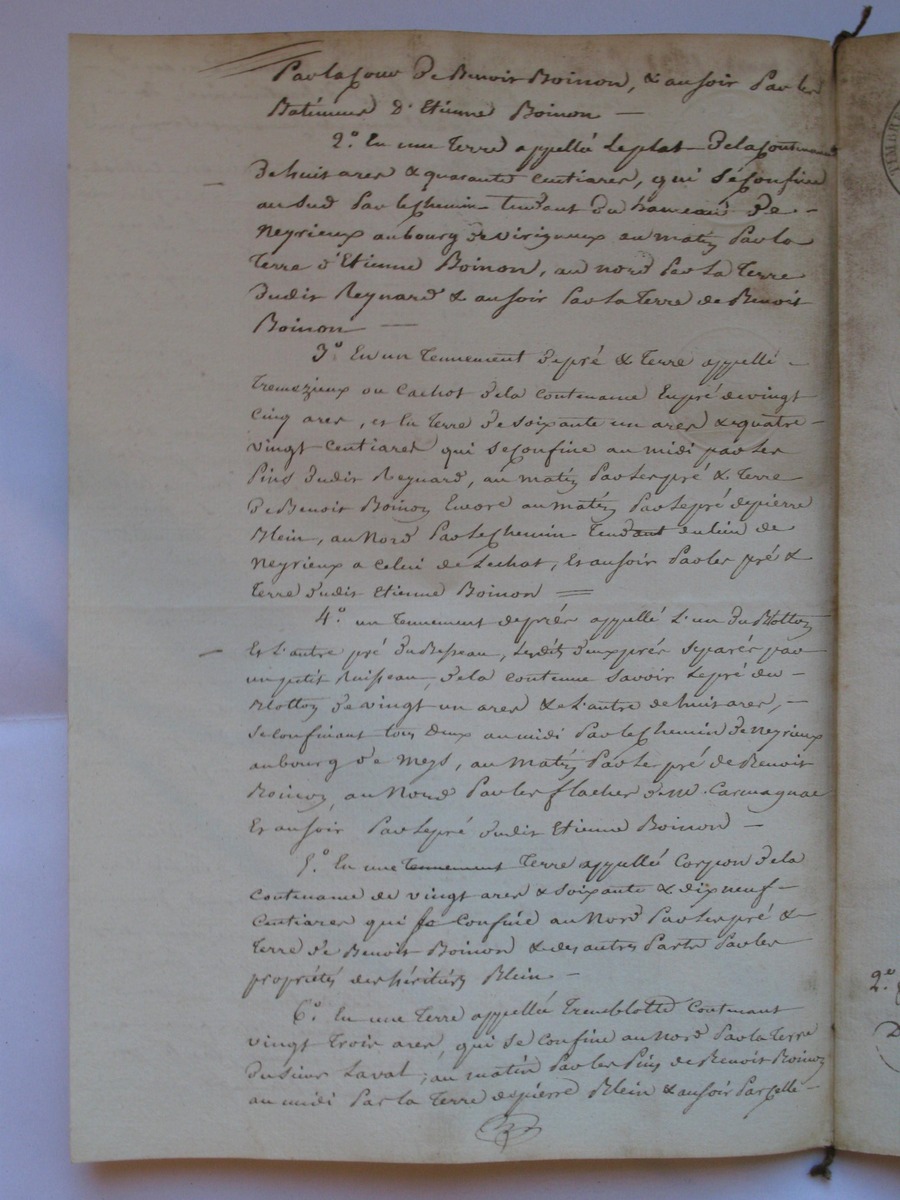 Par la Cour de Benoit Boinon, & au soir Par les
Batiments d'Etienne Boinon —
2.° En une terre appellé Leplat De la Contenance
De huit ares & quarante centiares, qui se Confine
au sud Par le Chemin tendant Du hameau De –
Neyrieux au bourg De virigneux au matin Par la
terre d'Etienne Boinon, au nord Par la terre
Dudit Reynard & au soir Par la terre de Benoit
Boinon —
3.° En un tennement De pré & terre appellé –
tremezieux ou cachot De la contenance En pré De vingt
cinq ares, et En terre De soixante un ares & quatre –
vingt centiares qui se Confine au midi par les
Pins Dudit Reynard, au matin Par les pré & terre
De Benoit Boinon Encore au matin Par le pré de pierre
Blein, au Nord Par le Chemin tendant du lieu de
Neyrieux a celui de Lechat, Et au soir Par les pré &
terre Dudit Etienne Boinon =
4.° un tennement de prés appellé L'un Du Blotton
Et L'autre pré Du Ruisseau, Lesdits Deux prés separés par
un petit Ruisseau, De la contenue savoir Le pré Du –
Blotton De vingt un ares & L'autre De huit ares, –
se confinant tous Deux au midi Par le Chemin De Neyrieux
au bourg De Meys, au Matin Par les pré de Benoit
Boinon, au Nord Par les flaches De M. Carmagnac
Et au soir Par le pré Dudit Etienne Boinon —
5.° En une tennement terre appellé Corpion De la
contenance de vingt ares & soixante & dix neuf –
centiares qui se confine au Nord Par les pré &
terre De Benoit Boinon & des autres Parts Par les
propriétés des héritiers Blein –
6.° En une terre appellée tremblotte contenant
vingt trois ares, qui se confine au Nord Par la terre
Du sieur Laval; au matin Par les Pins de Benoit Boinon
au midi Par la terre de pierre Blein & au soir Par Celle –
TIMBRE
2.e